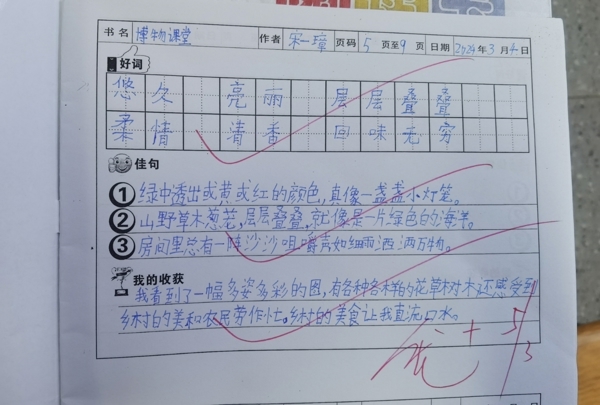 书名 博物课堂 作者 宋一璋 页码 5 页至 9 页 日期 2024年3月4日
好词
悠久 亮丽 层层叠叠
柔情 清香 回味无穷
佳句
1 绿中透出或黄或红的颜色,真像一盏盏小灯笼。
2 山野草木葱茏,层层叠叠,就像是一片绿色的海洋。
3 房间里总有一阵沙沙咀嚼声如细雨洒洒万物。
我的收获
我看到了一幅多姿多彩的图,有各种各样的花草树木还感受到
乡村的美和农民劳作忙。乡村的美食让我直流口水。
优+ 5/3